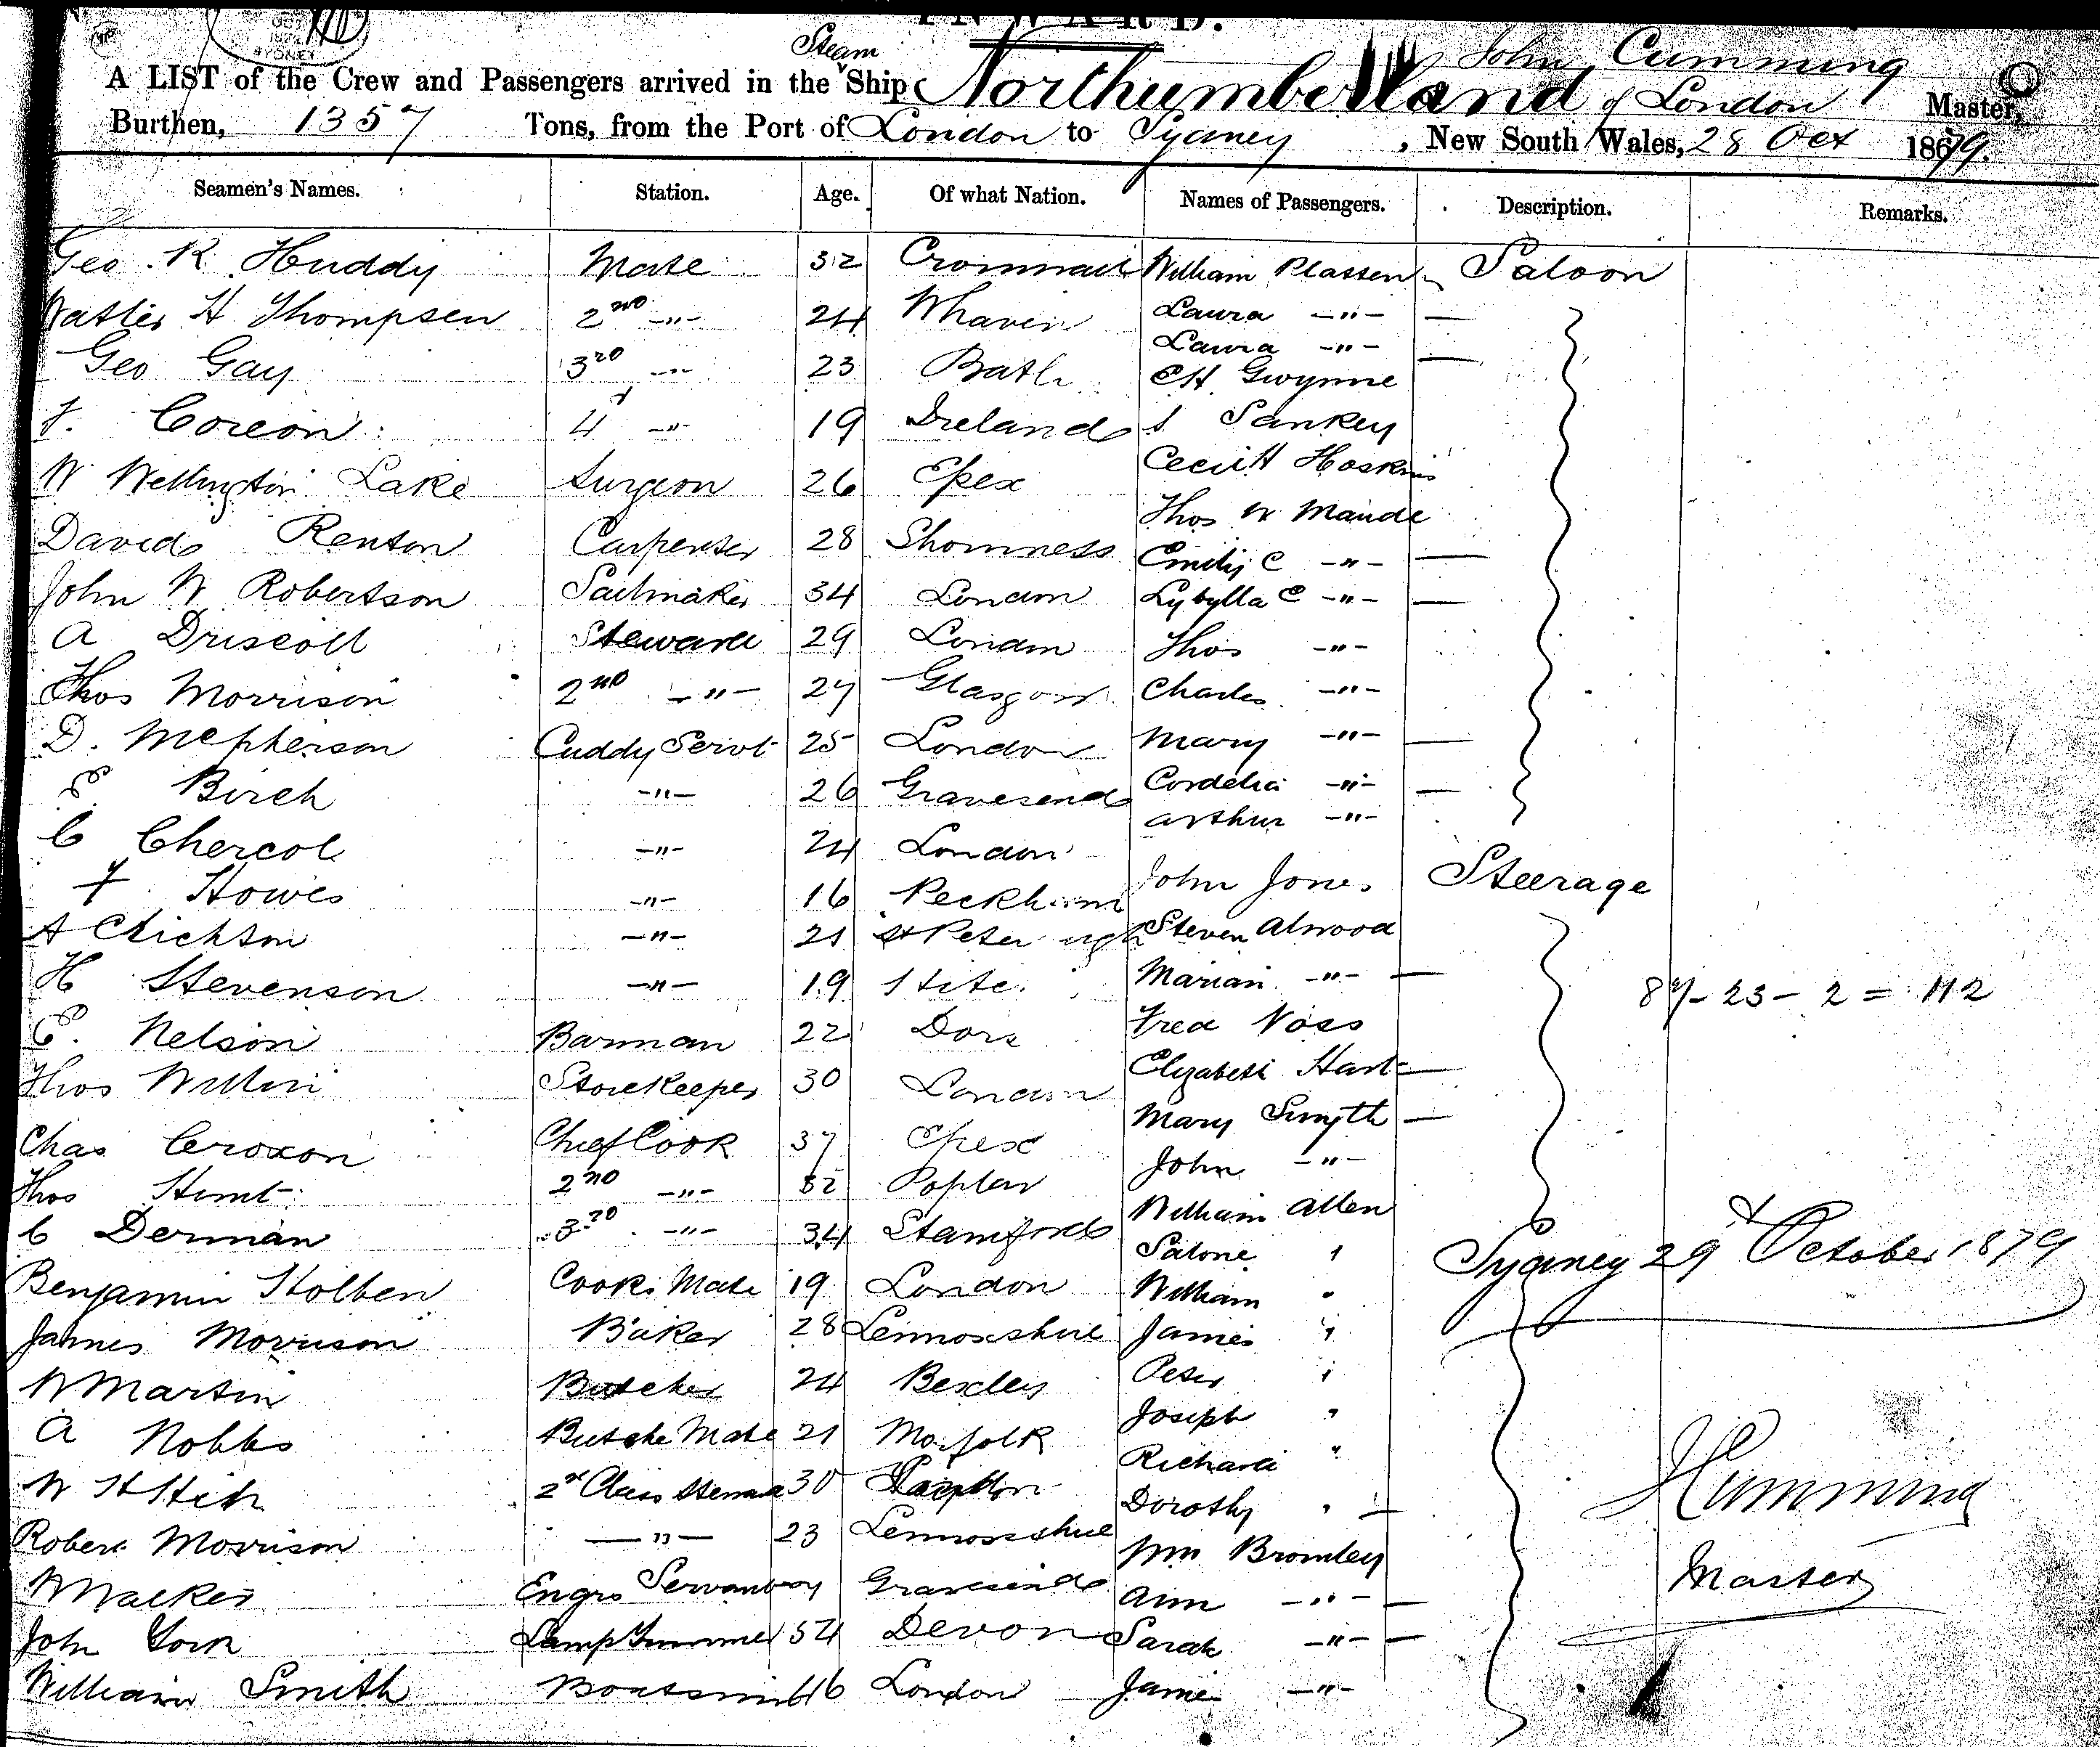 INWARD.
Steam John Cumming
A LIST of the Crew and Passengers arrived in the Ship Northumberland of London Master,
Burthen, 1357 Tons, from the Port of London to Sydney, New South Wales, 28 Oct 1879.
Seamen's Names. Station. Age. Of what Nation. Names of Passengers. Description. Remarks.
Geo. R Huddy Mate 32 William Plassen Saloon
H Thompsen 2nd -"- 24 Whaven Laura -"- —
Laura -"- —
Geo Gay 3rd -"- 23 Bath CH Gwynne
4 -"- 19 Ireland Sankey
W Wellington Lake Surgeon 26 Essex Cecil H Hoskins
Thos W Maude
David Renton Carpenter 28 Emily C -"- —
John W Robertson Sailmaker 34 London Sybylla C -"- —
A Driscoll Steward 29 London Thos -"-
Thos Morrison 2nd -"- 27 Glasgow Charles -"-
D. McPherson Cuddy Servt 25 London Mary -"- —
E Birch -"- 26 Gravesend Cordelia -"- —
Arthur -"-
C -"- 24 London
Howes -"- 16 Peckham John Jones Steerage
A -"- 21 St Peter Steven Atwood
H Stevenson -"- 19 Marian -"- —
87 - 23 - 2 = 112
E. Nelson Barman 22 Fred Voss
Thos Storekeeper 30 London Elizabeth Hart —
Mary Smyth —
Chas Croxon Chief Cook 37 Essex John -"-
Thos Hunt 2nd -"- Poplar William Allen
C Derman 3rd -"- 34 Stamford "
Sydney 29th October 1879
Benjamin Holben Cooks Mate 19 London William "
James Morrison Baker 28 James "
W Martin Butcher 24 Bexley Peter "
Joseph "
A Nobbs Butche Mate 21 Norfolk Richard "
W 2d Class 30 Dorothy " —
Robert Morrison -"- 23 Wm Bromley
JCumming
Master
Walker Engrs Servant Gravesend Ann -"- —
John York Lamp Trimmer 54 Devon Sarah -"- —
William Smith London James -"-